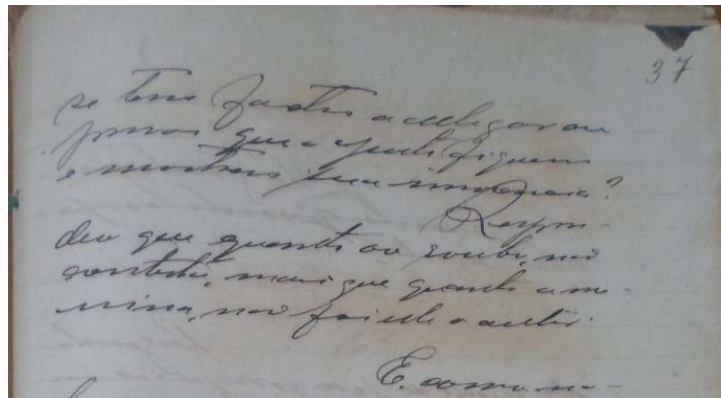 37
se tem factos a allegar ou
provas que o justifiquem
e mostrem sua innocencia?
Respon-
deu que quanto ao roubo, não
contesta, mais que quanto a me-
nina, não foi elle o autor.
E como na-